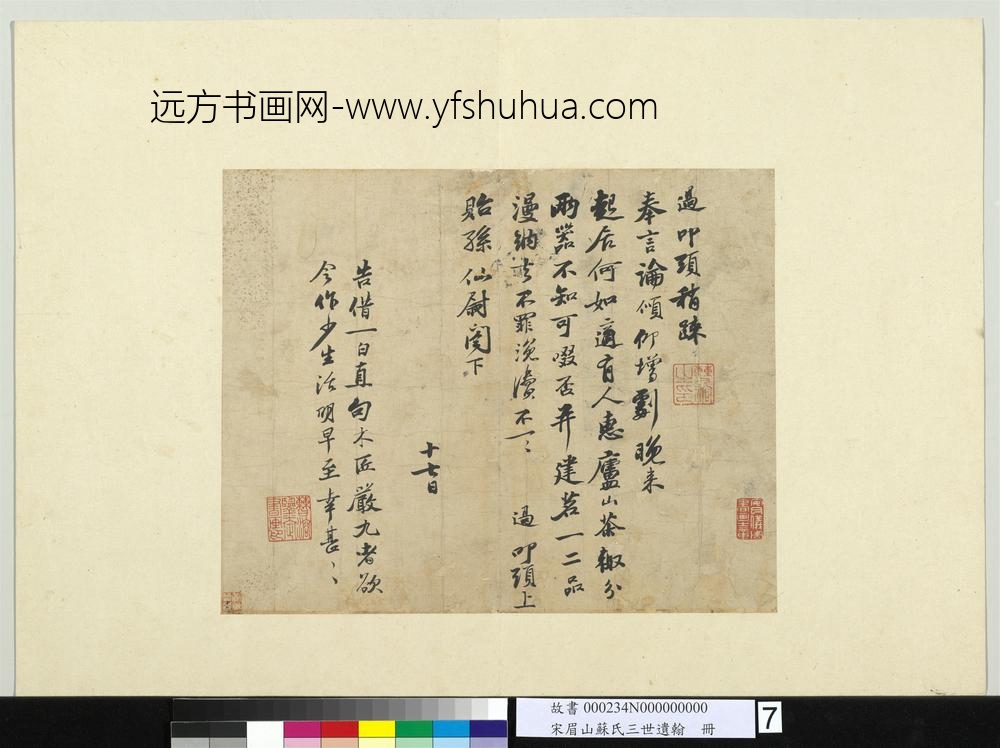 远方书画网-www.yfshuhua.com
過叩頭稍疎
奉言論傾仰增劇晚来
起居何如適有人惠廬山茶輙分
兩器不知可啜否并建茗一二品
漫納去不罪浼瀆不一〻 過叩頭上
貽孫仙尉閤下
十七日
告借一白直句木匠嚴九者欲
令作少生活明早至幸甚〻
故書 000234N000000000
宋眉山蘇氏三世遺翰 冊
7